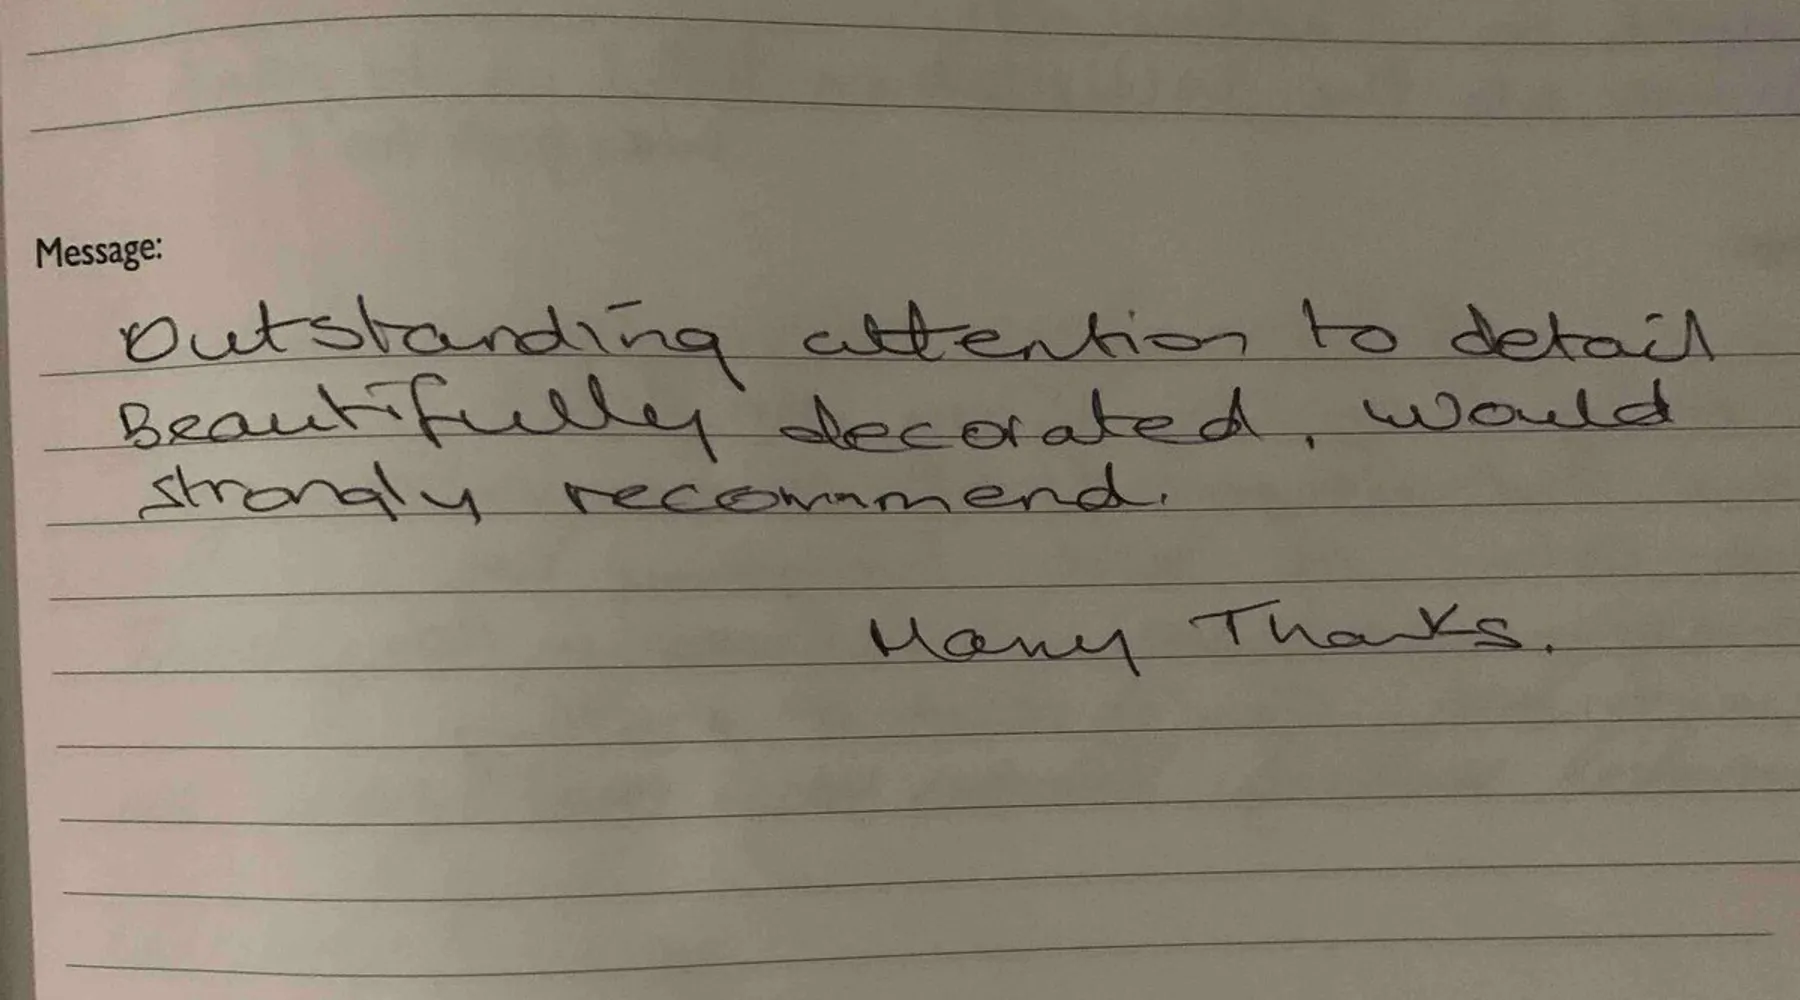 Message:
Outstanding attention to detail
Beautifully decorated, would
strongly recommend.
Many Thanks.